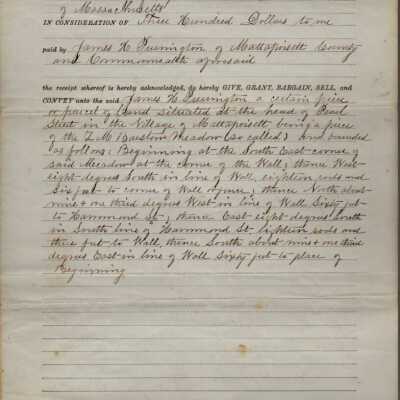 of Massachusetts
IN CONSIDERATION OF Three Hundred Dollars to me
paid by James H. Purrington of Mattapoisett County
and Commonwealth aforesaid
the receipt whereof is hereby acknowledged, do hereby GIVE, GRANT, BARGAIN, SELL, and
CONVEY unto the said James H. Purrington a certain piece
or parcel of Land situated at the head of Pearl
Street in the Village of Mattapoisett being a piece
of the Meadow (so called) And bounded
as follows: Beginning at the South East corner of
said Meadow at the corner of the Wall; thence West
eight degrees South in line of Wall eighteen rods and
Six feet to corner of Wall; thence North about
nine + one third degrees West in line of Wall Sixty feet
to Hammond St; thence East eight degrees South
in South line of Hammond St eighteen rods and
three feet to Wall, thence South about nine + one third
degrees East in line of Wall Sixty feet to place of
Beginning